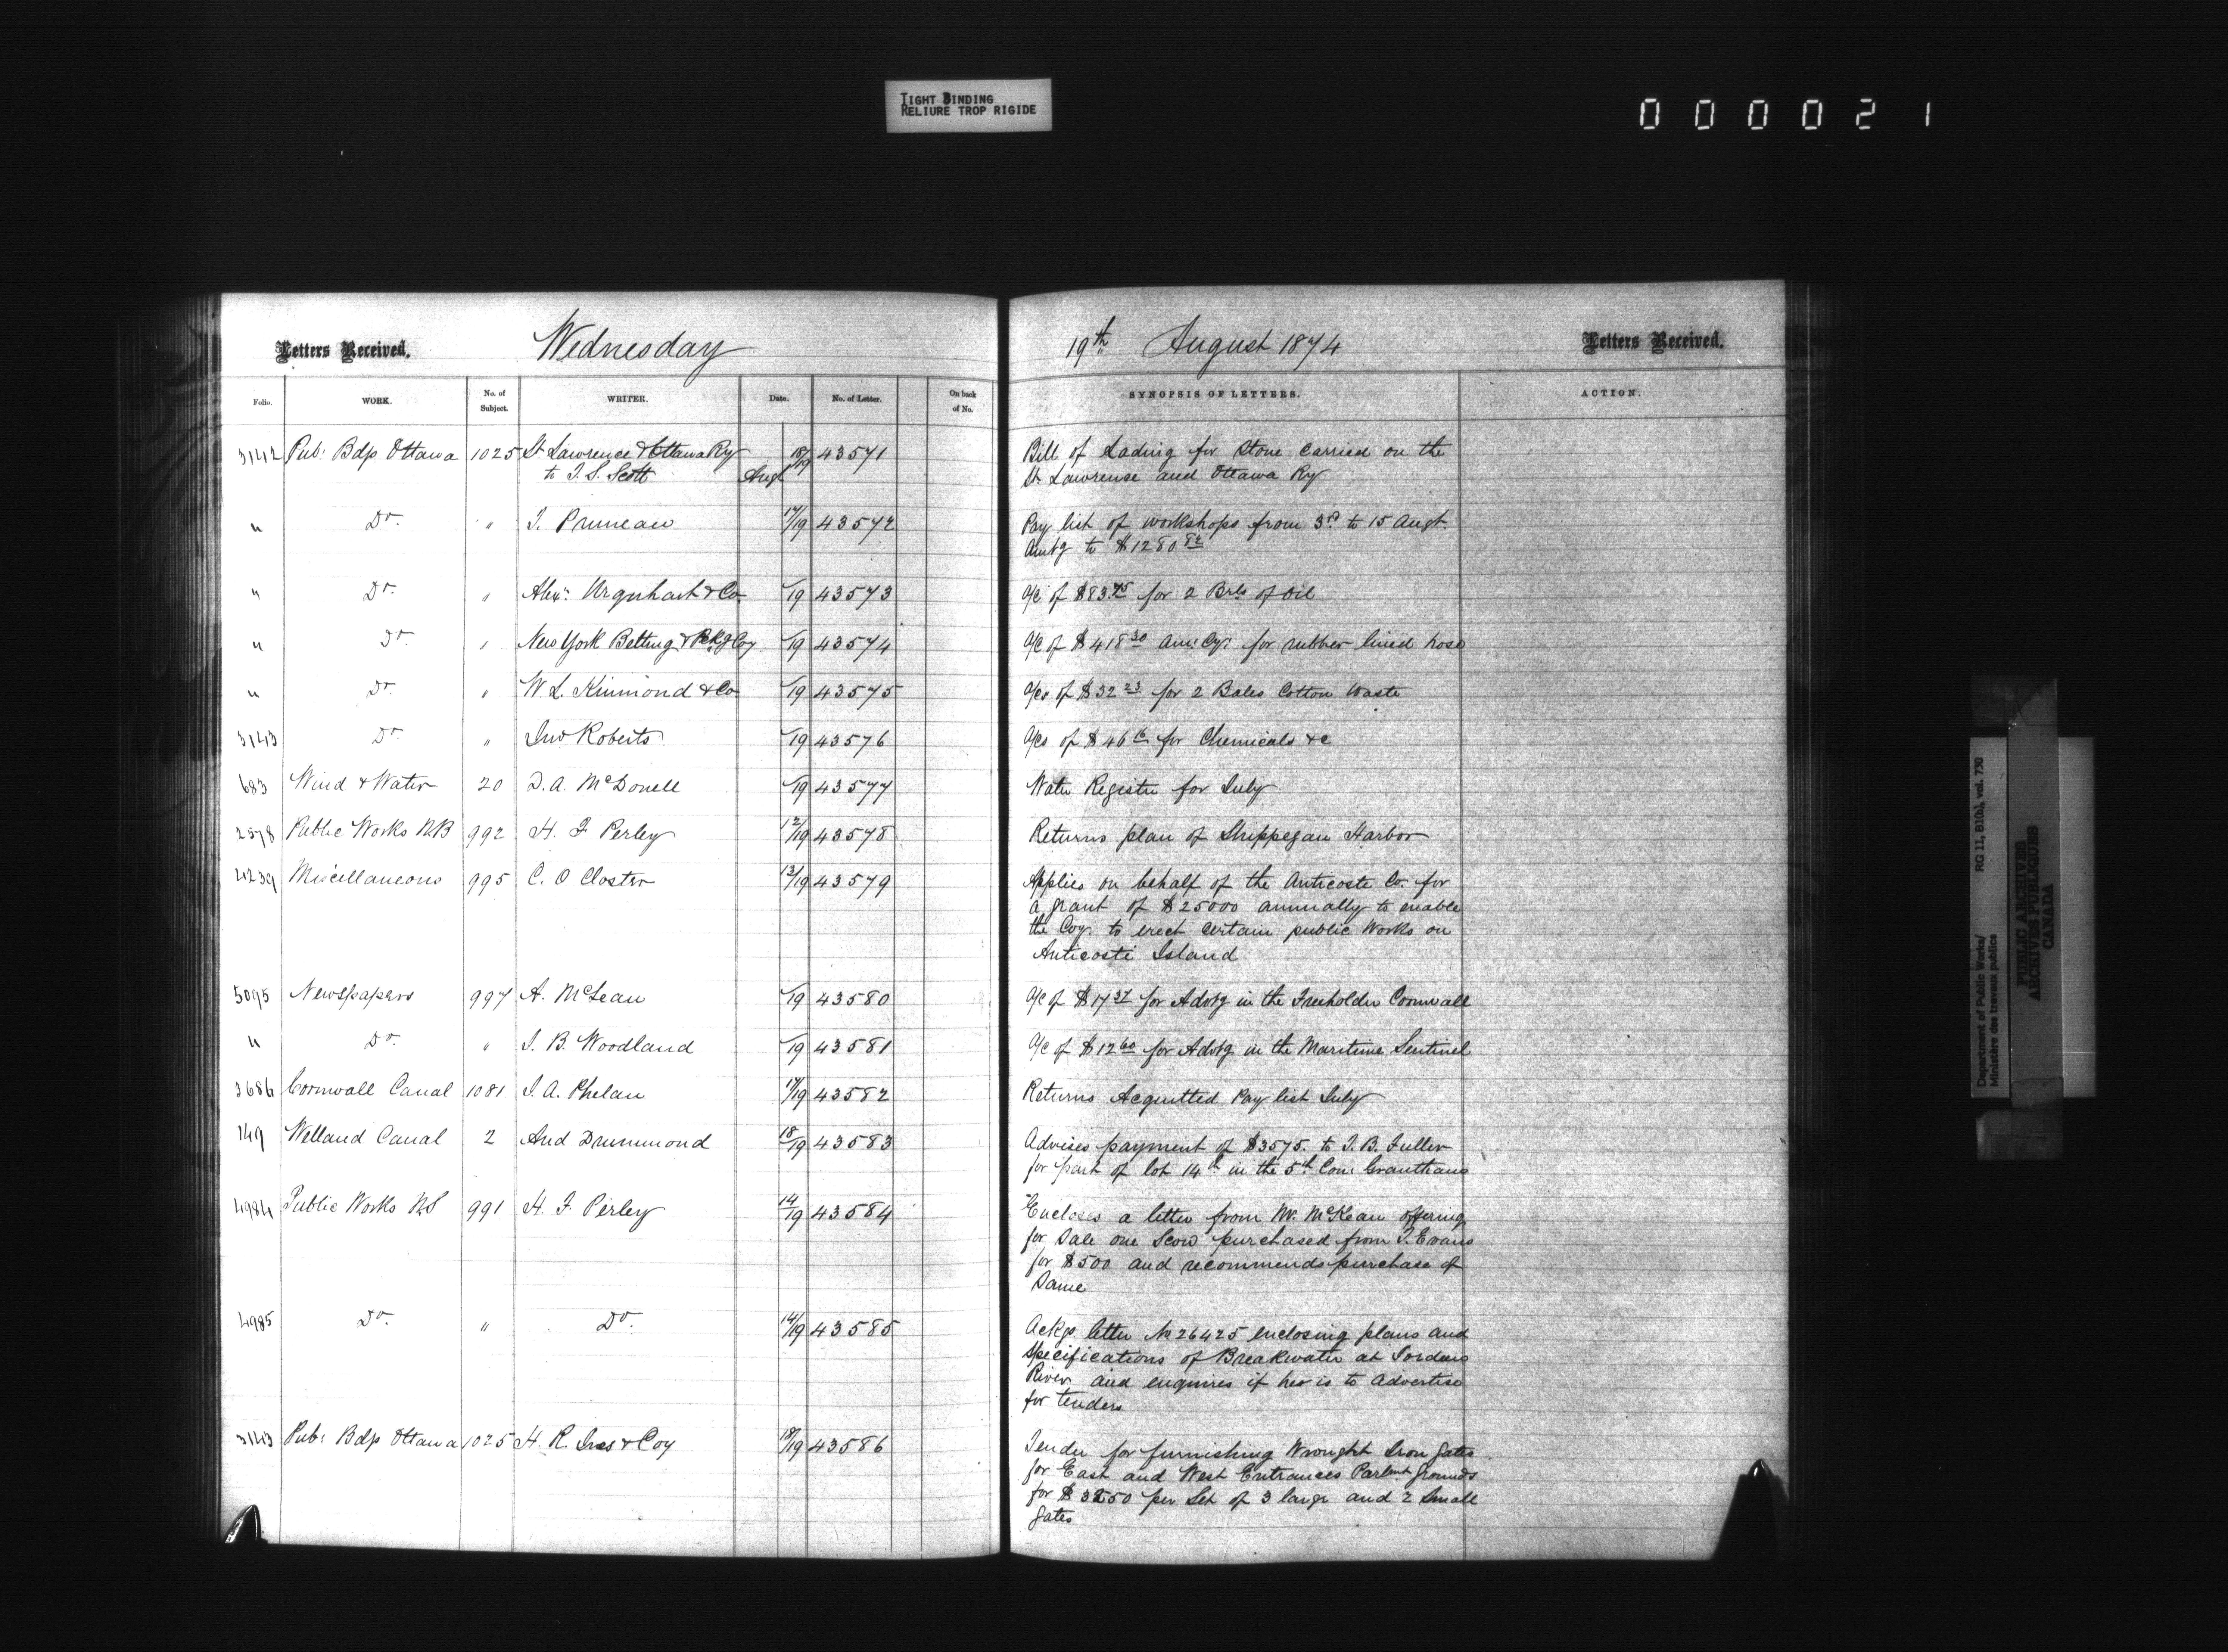 TIGHT BINDING
RELIURE TROP RIGIDE
000021
Letters Received. Wednesday 19th August 1874 Letters Received.
Folio. WORK. No. of Subject. WRITER. Date. No. of Letter. On back of No. SYNOPSIS OF LETTERS. ACTION.
3142 Pub: Bdgs Ottawa 1025 St Lawrence & Ottawa Ry 18/19 43571 Bill of Lading for Stone carried on the
to T. S. Scott Augt St Lawrence and Ottawa Ry
" Do. " T. Pruneau 17/19 43572 Pay list of workshops from 3rd to 15 Augt.
Amtg to $1280 82
" Do. " Alexr Urquhart & Co. /19 43573 A/c of $83.75 for 2 Brls of Oil
" Do. " New York Belting & Pckg Coy /19 43574 A/c of $418 30 Am: Cy: for rubber lined hose
" Do. " W. L. Kinmond & Co /19 43575 A/cs of $32 23 for 2 Bales Cotton Waste
3143 Do. " Jno Roberts /19 43576 A/cs of $46 16 for Chemicals &c
683 Wind & Water 20 D. A. McDonell /19 43577 Water Register for July
2578 Public Works N.B 992 H. F. Perley 12/19 43578 Returns plan of Shippegan Harbor
4239 Miscellaneous 995 C. O Closter 13/19 43579 Applies on behalf of the Anticoste Co. for
a grant of $25000 annually to enable
the Coy. to erect certain public Works on
Anticosti Island
5095 Newspapers 997 A. McLean /19 43580 A/c of $17 37 for Advtg in the Freeholder Cornwall
" Do. " J. B. Woodland /19 43581 A/c of $12 60 for Advtg in the Maritime Sentinel
3686 Cornwall Canal 1081 J. A. Phelan 17/19 43582 Returns Acquitted Pay list July
149 Welland Canal 2 And Drummond 18/19 43583 Advises payment of $3575. to T. B. Fuller
for part of lot 14th in the 5th Con: Grantham
4984 Public Works N.S 991 H. F. Perley 14/19 43584 Encloses a letter from Mr. McKean offering
for Sale one Scow purchased from T. Evans
for $500 and recommends purchase of
Same
4985 Do. " Do. 14/19 43585 Ackgs letter No 26425 enclosing plans and
Specifications of Breakwater at Jordans
River and enquires if he is to Advertise
for tenders
3143 Pub: Bdgs Ottawa 1025 H. R. Ives & Coy 18/19 43586 Tender for furnishing Wrought Iron gates
for East and West Entrances Parlmt grounds
for $3250 per Set of 3 large and 2 Small
gates
Department of Public Works/ RG 11, B1(b), vol. 730
Ministère des travaux publics
PUBLIC ARCHIVES
ARCHIVES PUBLIQUES
CANADA